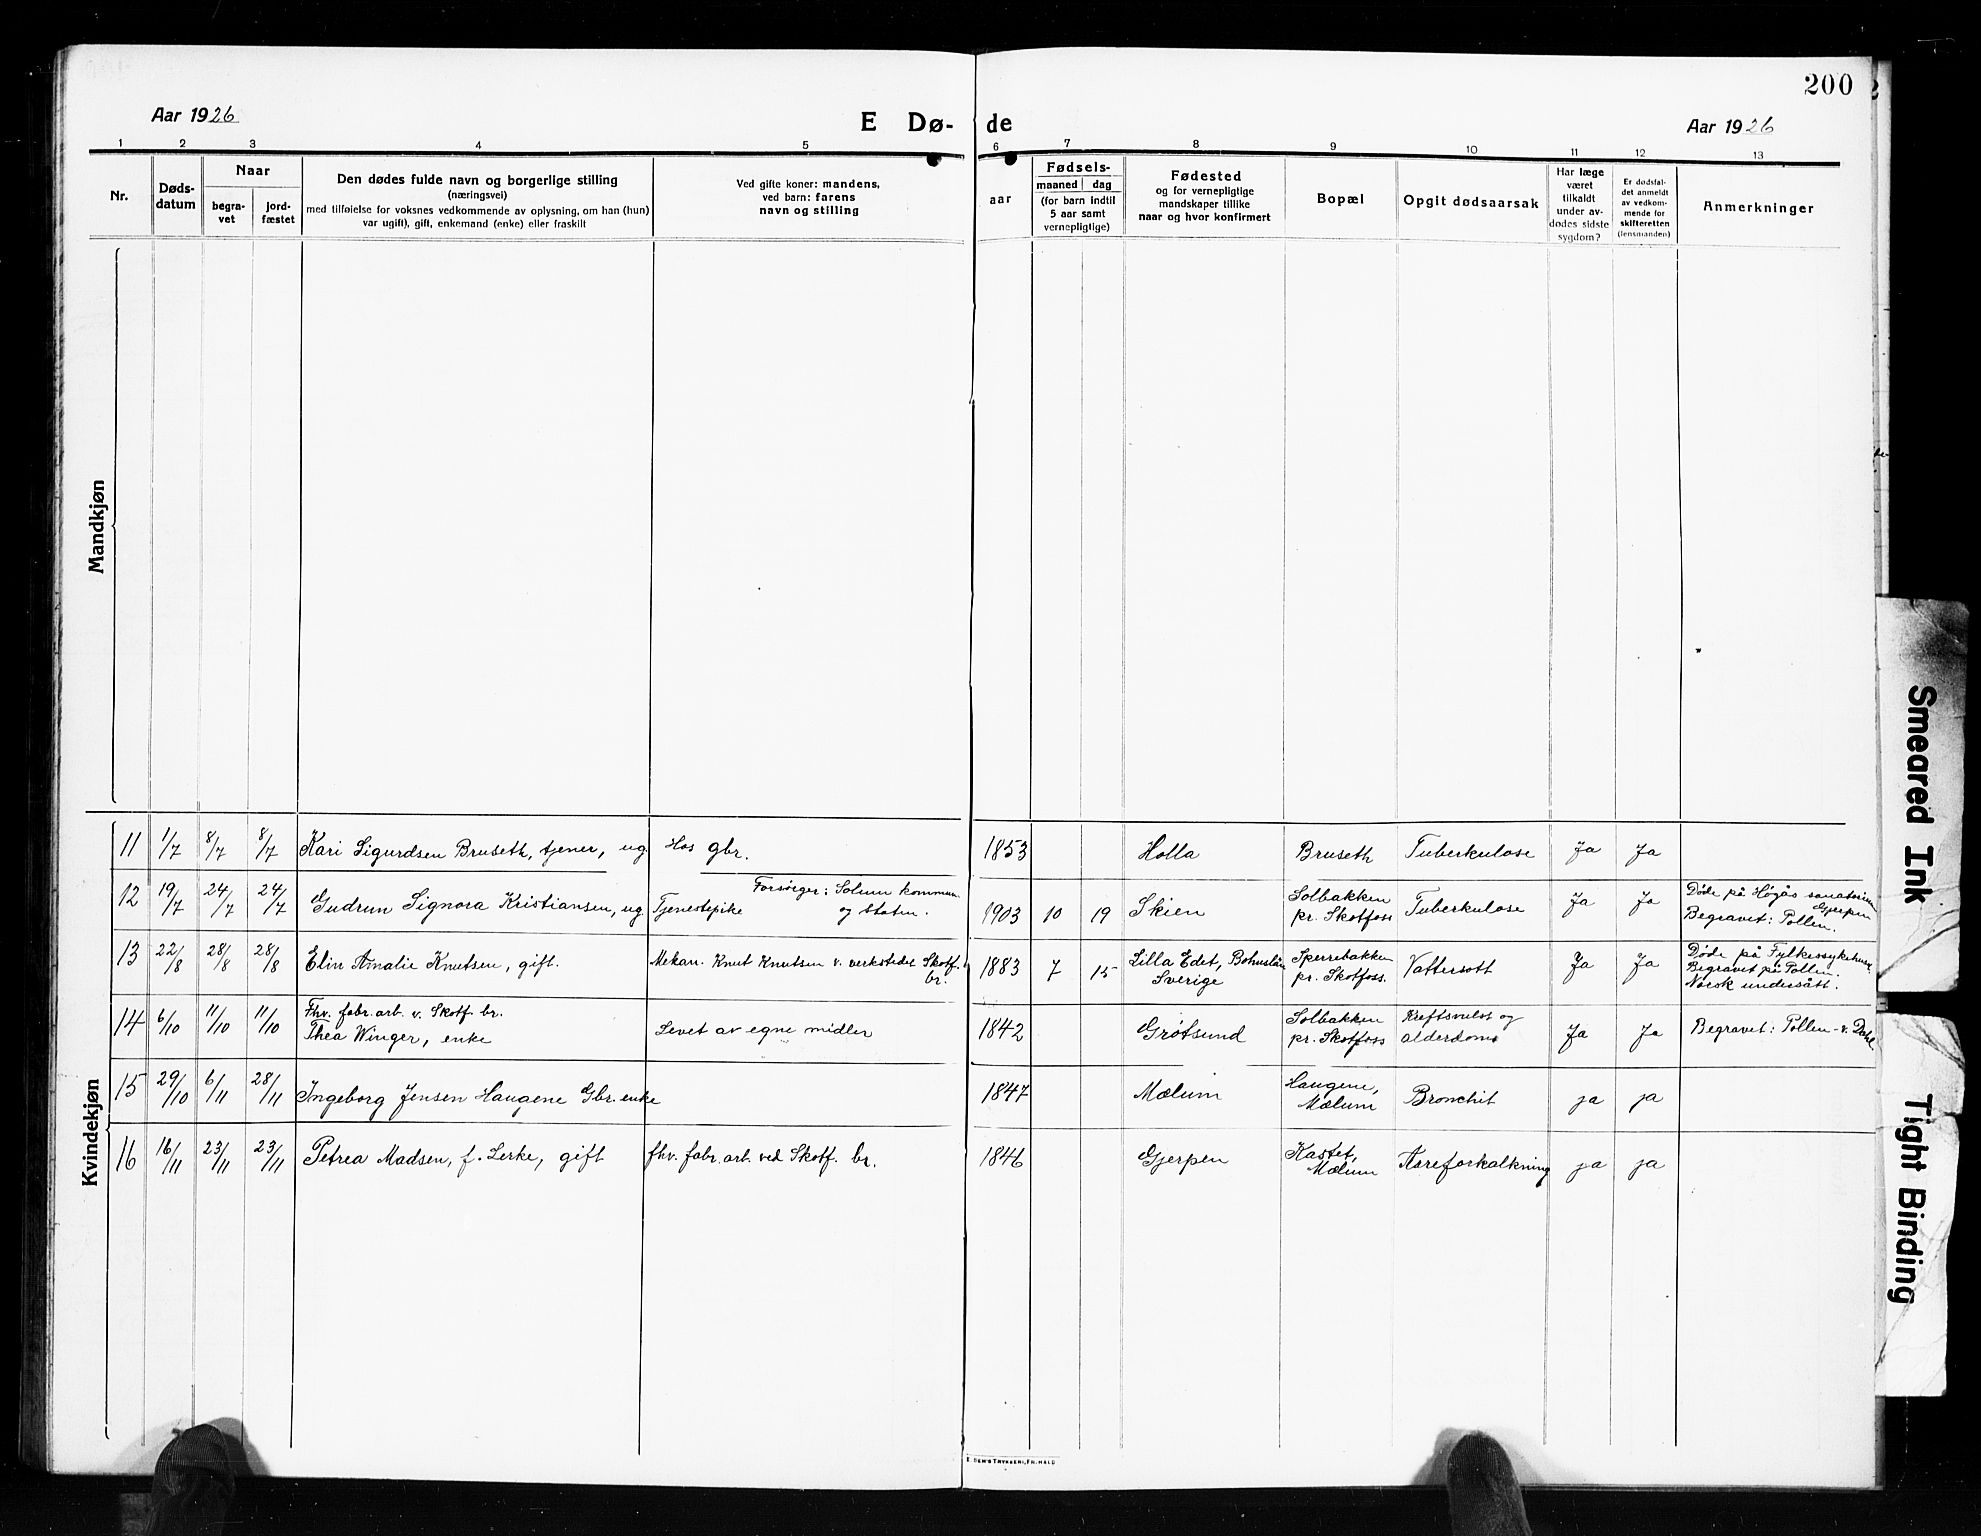 200
Aar 1926
E Dø- de
Aar 1926
1 2 3 4 5 6 7 8 9 10 11 12 13
Nr.
Døds-
datum
Naar
begra-
vet
jord-
fæstet
Den dødes fulde navn og borgerlige stilling
(næringsvei)
med tilføielse for voksnes vedkommende av oplysning, om han (hun)
var ugift, gift, enkemand (enke) eller fraskilt
Ved gifte koner: mandens,
ved barn: farens
navn og stilling
aar
Fødsels-
maaned dag
(for barn indtil
5 aar samt
vernepligtige)
Fødested
og for vernepligtige
mandskaper tillike
naar og hvor konfirmert
Bopæl
Opgit dødsaarsak
Har læge
været
tilkaldt
under av-
dødes sidste
sygdom?
Er dødsfal-
det anmeldt
av vedkom-
mende for
skifteretten
(lensmanden)
Anmerkninger
Mandkjøn
Kvindekjøn
11 1/7 8/7 8/7 Kari Sigurdsen Bruseth, tjener, ug. Hos gbr. 1853 Holla Bruseth Tuberkulose Ja Ja
12 19/7 24/7 24/7 Gudrun Signora Kristiansen, ug. Tjenestepike
Forsørger: Solum kommune
og Staten.
1903 10 19 Skien
Solbakken
pr. Skotfoss
Tuberkulose Ja Ja
Døde på Høgås sanatorium
Gjerpen
Begravet: Pollen.
13 22/8 28/8 28/8 Elin Amalie Knutsen, gift. Mekan. Knut Knutsen v. verkstedet Skotf.
br.
1883 7 15 Lilla Edet, Bohuslän
Sverige
Sperrebakken
pr. Skotfoss.
Vattersott Ja Ja
Døde på Fylkessykehuset
Begravet på Pollen.
Norsk undersått.
14 6/10 11/10 11/10 Fhv. fabr. arb. v. Skotf. br.
Thea Winger, enke
Levet av egne midler
1842 Grøtsund
Solbakken
pr. Skotfoss
Kreftsvulst og
alderdom
Ja Ja Begravet: Pollen - v. Dahl
15 29/10 6/11 28/11 Ingeborg Jensen Haugene Gbr. enke 1847 Mælum
Haugene,
Mælum
Bronchit ja ja
16 16/11 23/11 23/11 Petrea Madsen, f. Lerke, gift fhv. fabr. arb. ved Skotf. br. 1846 Gjerpen
Kastet,
Mælum
Aareforkalkning ja ja
Smeared Ink
Tight Binding